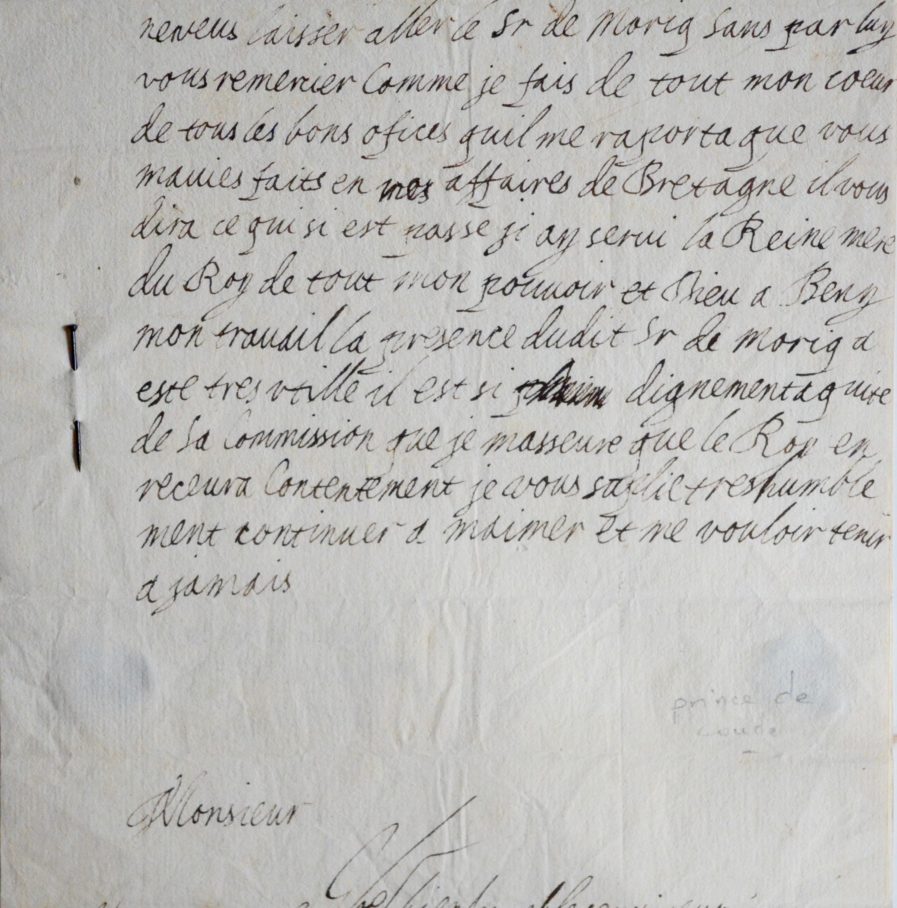 neveus laisser aller le Sr de Morig sans par luy
vous remercier Comme je fais de tout mon coeur
de tous les bons ofices quil me raporta que vous
mavies faits en mes affaires de Bretagne il vous
dira ce qui si est passe ji ay servi la Reine mere
du Roy de tout mon pouvoir et Dieu a Beny
mon travail la presence dudit Sr de Morig a
este tres utille il est si dignement aquite
de Sa Commission que je masseure que le Roy en
recevra Contentement je vous suplie treshumble
ment continuer a maimer et me vouloir tenir
a jamais
prince de
conde
Monsieur